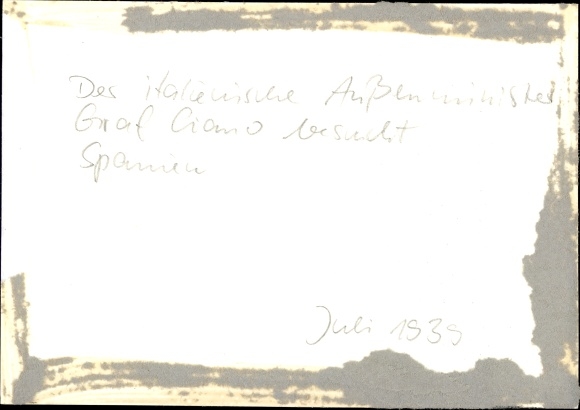 Der italienische Außenminister
Graf Ciano besucht
Spanien
Juli 1939